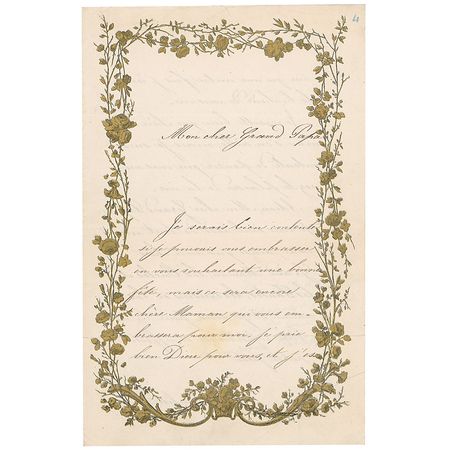 4
Mon cher Grand Papa
Je serais bien content
si je pouvais vous embrasser
en vous souhaitant une bonne
fête, mais ce sera encore
chère Maman qui vous em-
brassera pour moi, je prie
bien Dieu pour vous, et j'es